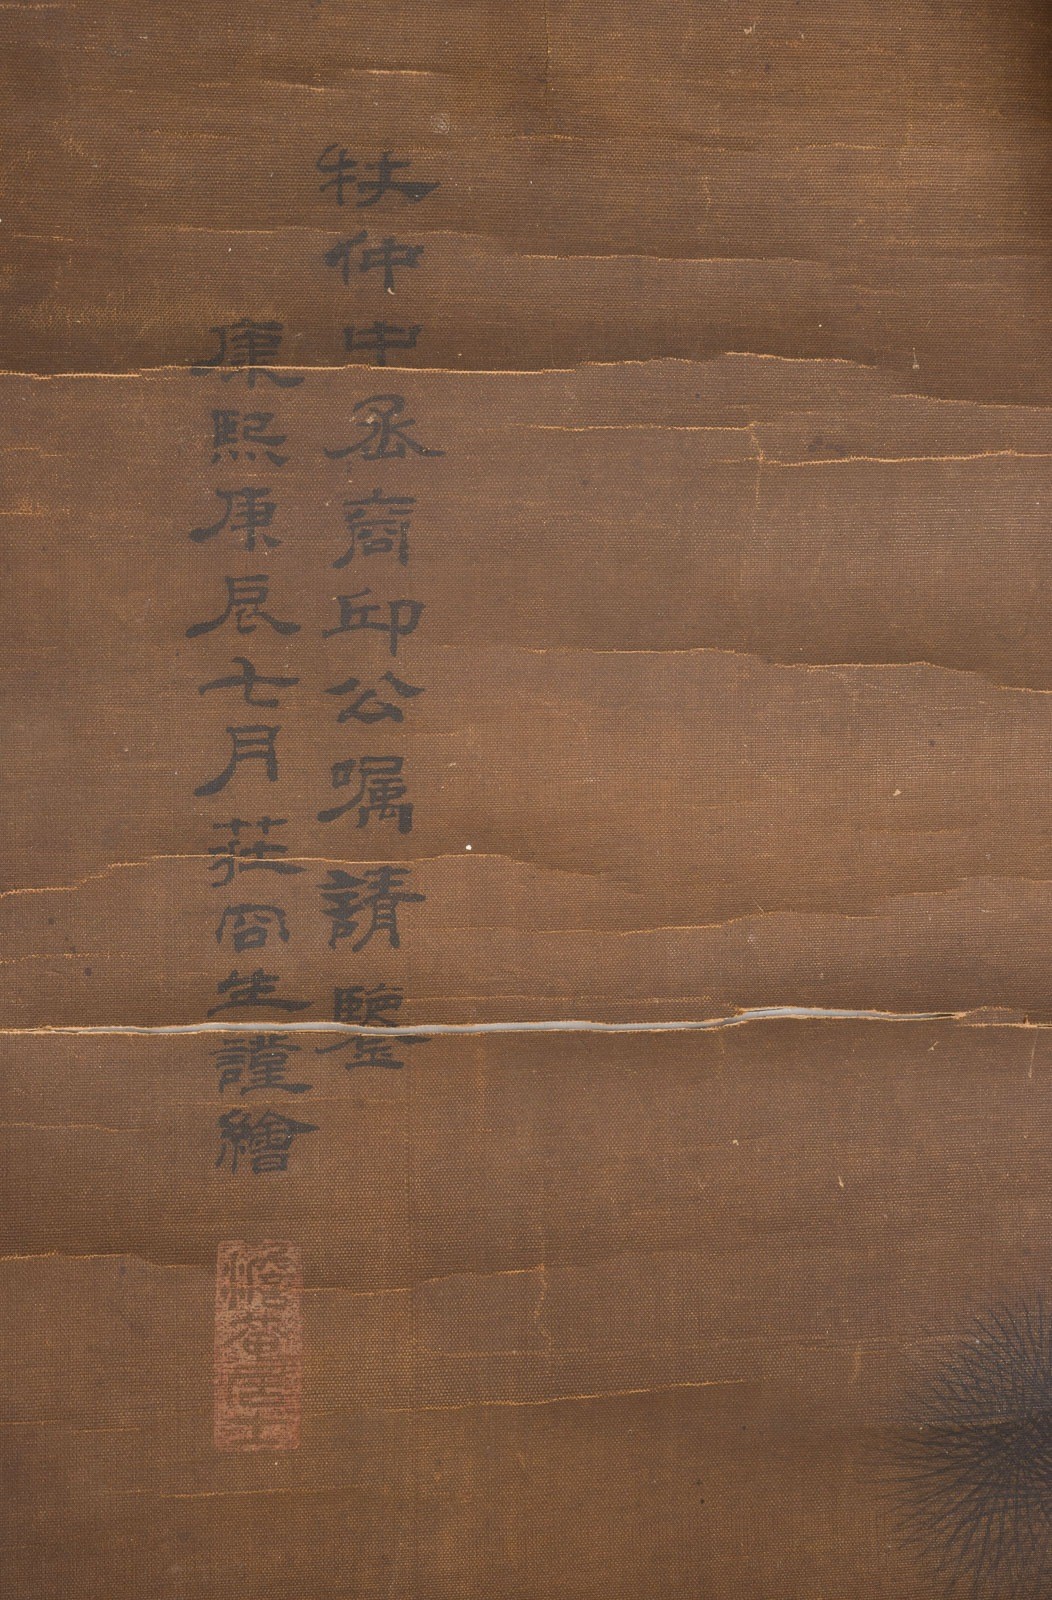 牧仲中丞商邱公嘱請鑒
康熙庚辰七月莊冏生謹繪
澹菴居士